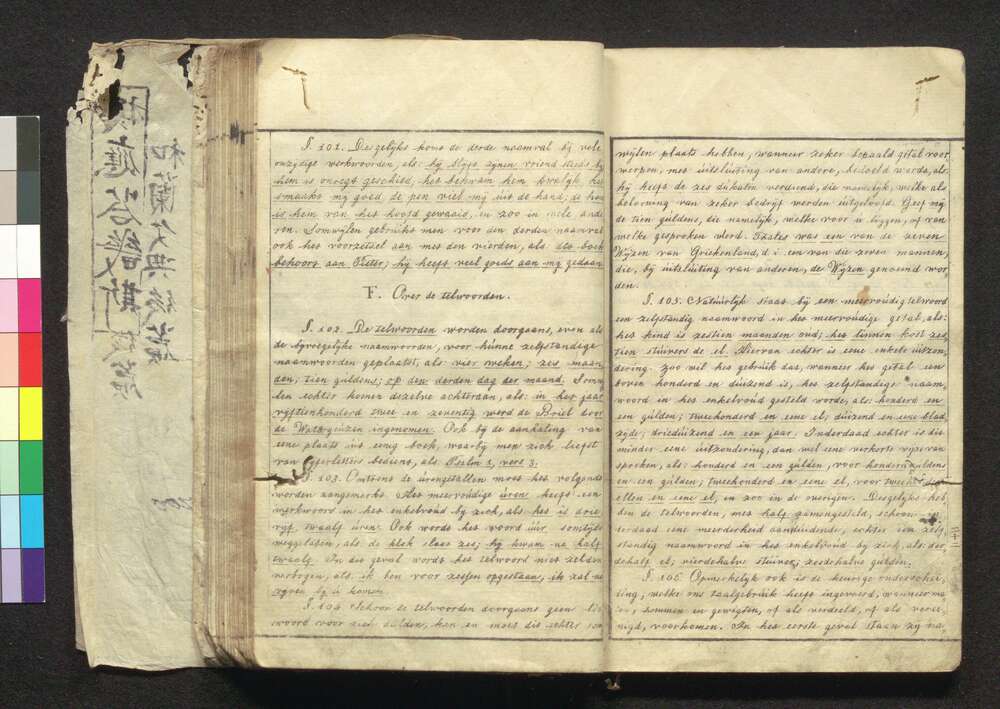 §. 101. Desgelyks koms de derde naamval by vele
onzydige werkwoorden, als: hy blyft zynen vriend steeds by
hem is onregt geschied; het bekwam hem kwalyk, het
smaakt my goed, de pen viel my uit de hand; de hoed
is hem van het hoofd gewaaid, en zoo in vele ande
ren. Somwylen gebruikt men voor den derden naamval
ook het voorzetsel aan met den vierden, als des boek
behoort aan Pieter; hy heeft veel goeds aan my gedaan
F. Over de telwoorden.
§. 102. De telwoorden worden doorgaans, even als
de byvoegelyke naamwoorden, voor hunne zelfstandige
naamwoorden geplaatst, als vier weken; zes maan
den; tien guldens; op den derden dag der maand. Somwy
len echter komen dezelve achteraan, als: in het jaar
vyftienhonderd twee en zeventig werd de Briel door
de Watergeuzen ingenomen. Ook by de aanhaling van
eene plaats uit eenig boek, waarby men zich liefst
van cyferletters bedient, als Psalm 2, vers 3.
§. 103. Omtrent de urengetallen moet het volgende
worden aangemerkt. Het meervoudige uren heeft een
werkwoord in het enkelvoud by zich, als het is drie
vyf, twaalf uren. Ook wordt het woord uur, somtyds
weggelaten, als de klok slaat zes; hy kwam na half
twaalf. In dit geval wordt het telwoord met zelven
verbogen, als, ik ben voor zessen opgestaan, ik zal na
by u komen.
§. 104. Schoon de telwoorden doorgaans geen lid
woord voor zich dulden, kan en moet dit echter som
wylen plaats hebben, wanneer zeker bepaald getal voor
werpen, met uitsluiting van andere, bedoeld wordt, als:
hy heeft de zes dukaten verdiend, die namelyk, welke als
belooning van zeker bedryf werden uitgeloofd. Geef my
de tien guldens, die namelyk, welke voor u liggen, of van
welke gesproken werd. Thales was een van de zeven
Wyzen van Griekenland, d. i. een van die zeven mannen,
die, by uitsluiting van anderen, de Wyzen genoemd wor
den.
§. 105. Natuurlyk staat by een meervoudig telwoord
een zelfstandig naamwoord in het meervoudige getal, als:
het kind is zestien maanden oud; het linnen kost zes,
tien stuivers de el. Hiervan echter is eene enkele uitzon,
dering. Zoo wil het gebruik dat, wanneer het getal een
boven honderd en duizend is, het zelfstandige naam,
woord in het enkelvoud gesteld worde, als: honderd en
een gulden; tweehonderd en eene el; duizend en eene blad
zyde; drieduizend en een jaar. Inderdaad echter is dit
minder eene uitzondering, dan wel eene verkorte wyze van
spreken, als: honderd en een gulden, voor honderd guldens
en een gulden; tweehonderd en eene el, voor tweehonderd
ellen en eene el, en zoo in de overigen. Desgelyks heb
ben de telwoorden, met half zamengesteld, schoon in
derdaad eene meerderheid aanduidende, echter een zelf
standig naamwoord in het enkelvoud by zich, als: der
dehalf el; vierdehalve stuiver; zesdehalve gulden.
§. 106. Opmerkelyk ook is de keurige onderschei,
ding, welke ons taalgebruik heeft ingevoerd, wanneer ma
ten, sommen en gewigten, of als verdeeld, of als veree
nigd, voorkomen. In het eerste geval staan zy na,
二十二
和蘭文典後編